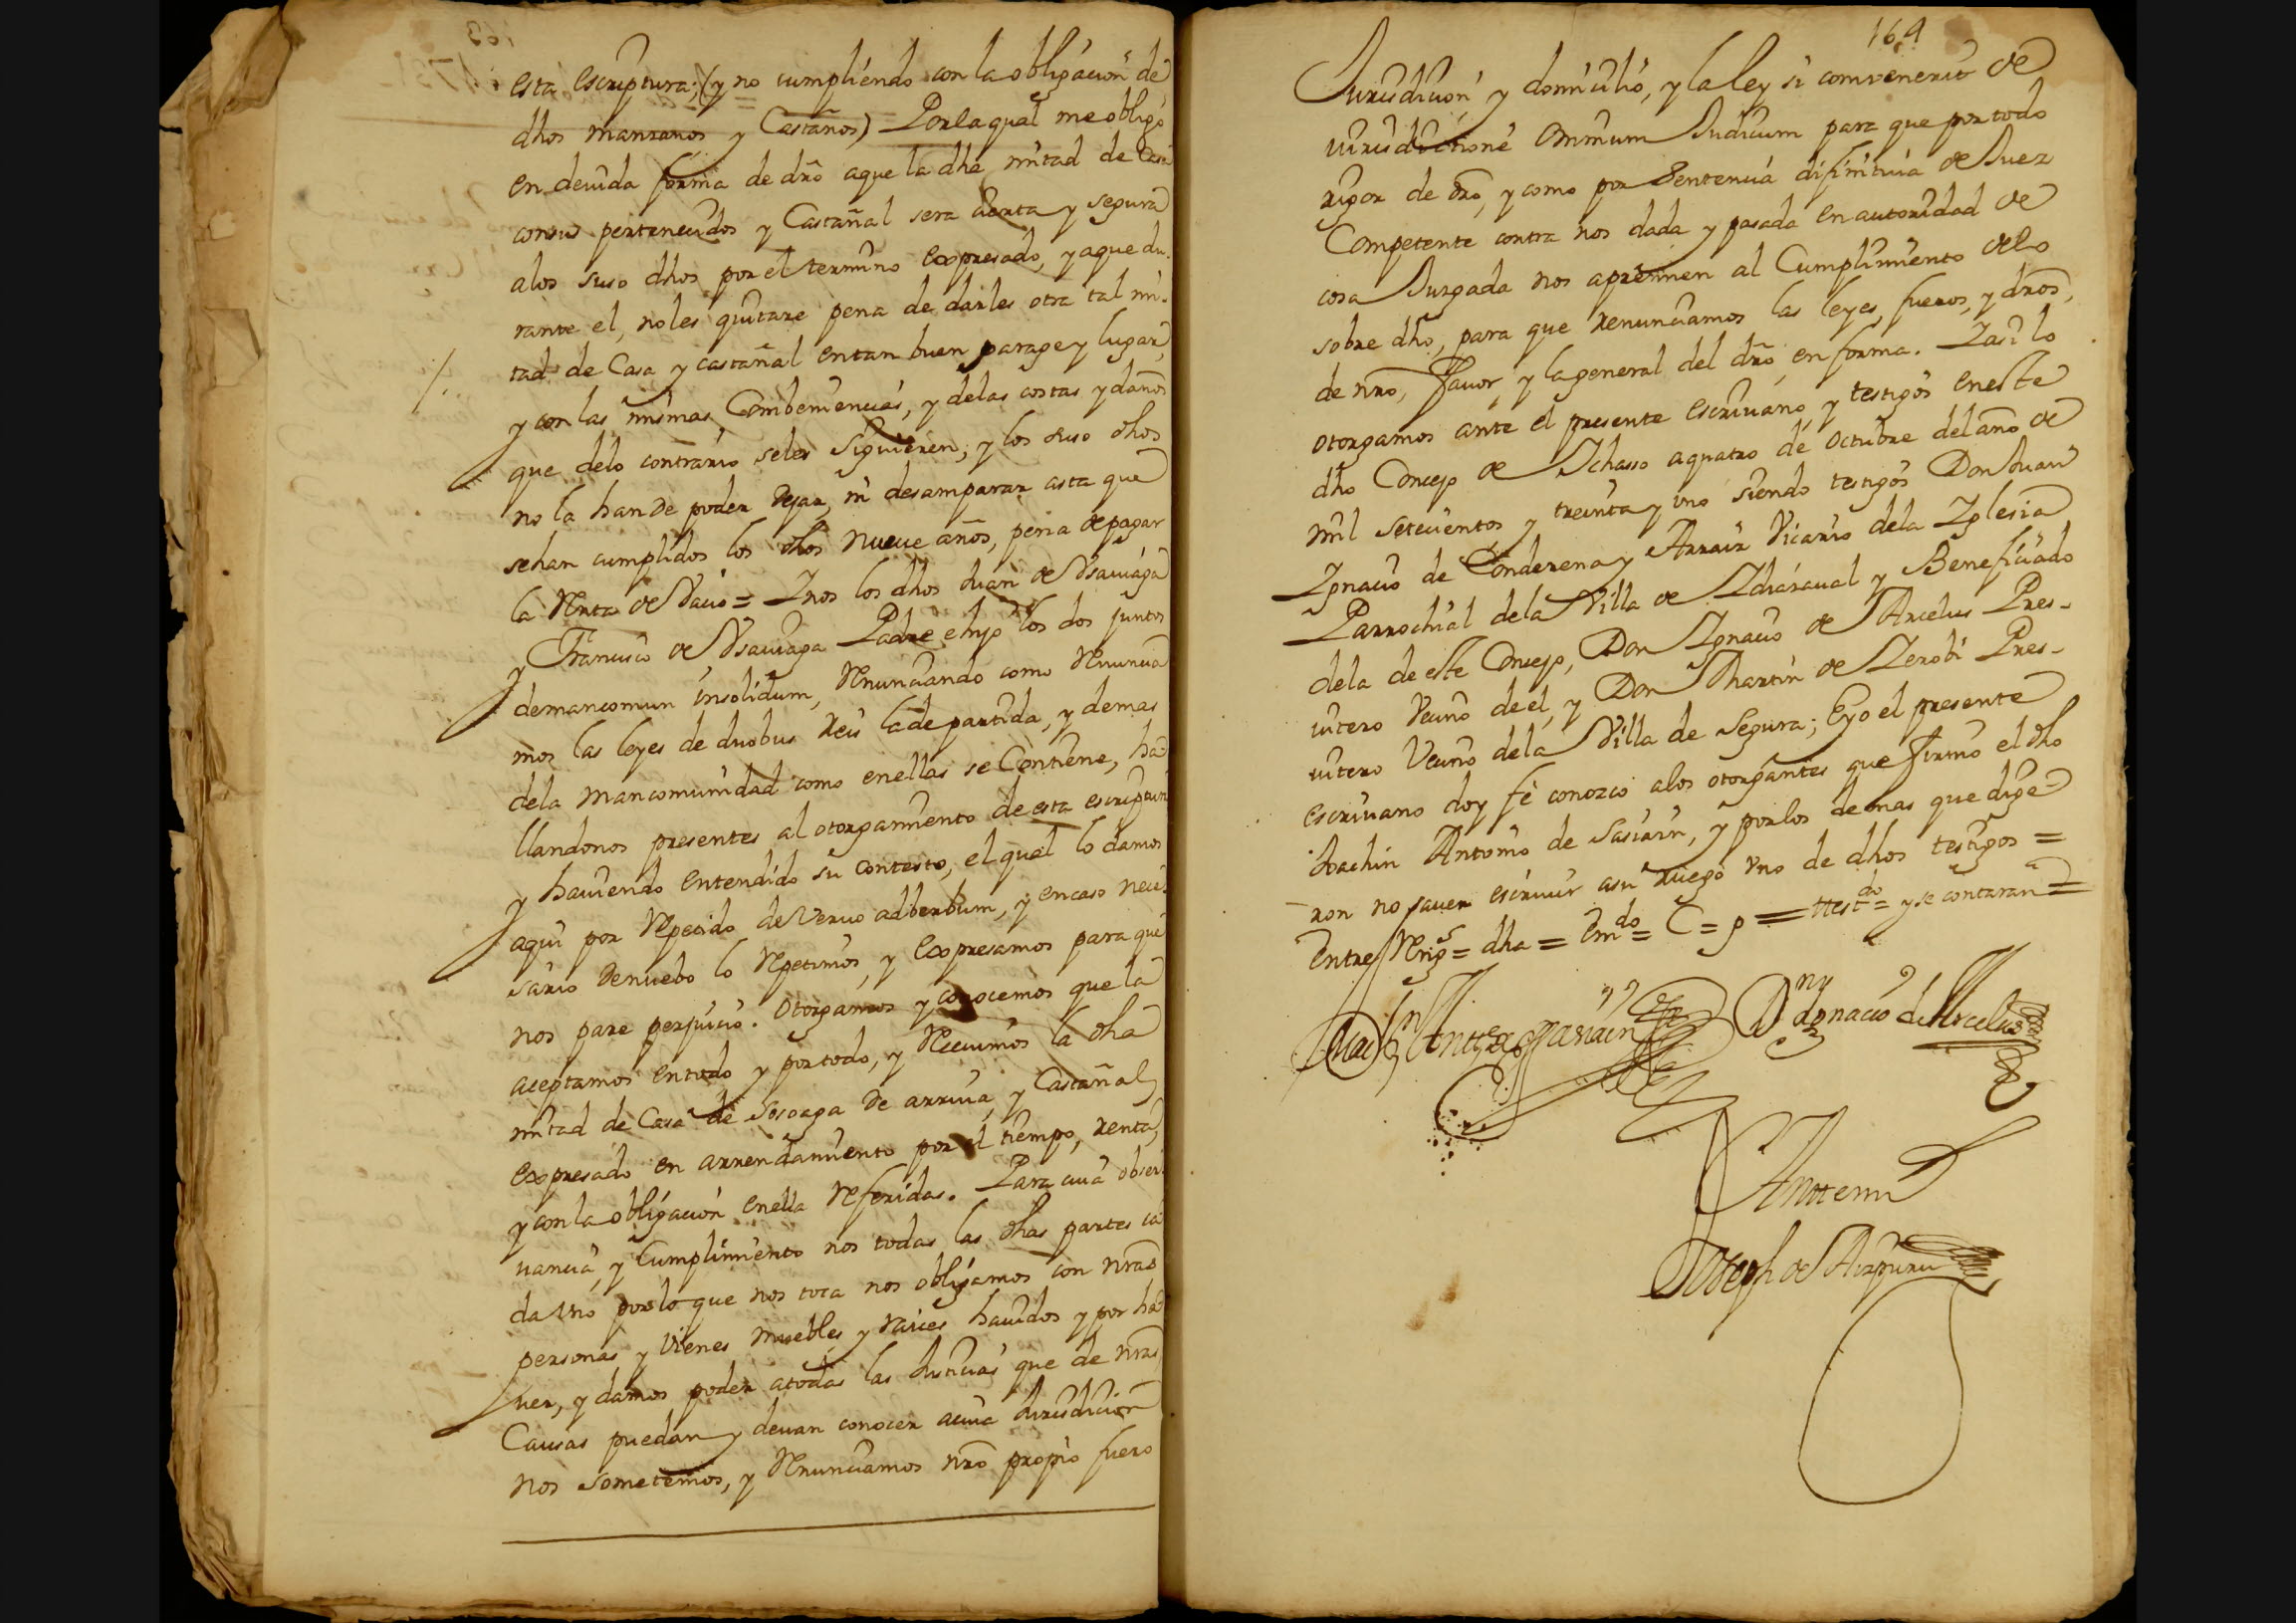 esta escriptura; (y no cumpliendo con la obligacion de
dhos manzanos y Castaños) Por la qual me obligo
en devida forma de dro aque la dha mitad de Casa
con sus pertenecidos y Castañal sera cierta y segura
alos suso dhos por el termino expresado, y aque du-
rante el, no les quitare pena de darles otra tal mi-
tad de Casa y castañal en tan buen parage y lugar,
y con las mismas Combeniencias, y delas costas y daños
que delo contrario seles siguieren; y los suso dhos
no la han de poder dejar, ni desamparar asta que
sehan cumplidos los dhos nueve años, pena de pagar
la Renta de Vacio = Y nos los dhos Juan de Usauiaga
y Francisco de Usauiaga Padre e hijo los dos juntos
demancomun insolidum, Renunciando como Renuncia
mos las leyes de duobus Reis la de partida, y demas
dela mancomunidad como enellas se Contiene, ha
llandonos presentes al otorgamiento de esta escriptura
y haviendo entendido su contesto, el qual lo damos
aqui por Repetido de Vervo adberbum, y encaso nece-
sario denuebo lo Repetimos, y expresamos para que
nos pare perjuicio. Otorgamos y conocemos que la
aceptamos entodo y portodo, y Recivimos la dha
mitad de Casa de Sosoaga de arriva, y Castañal
expresado en arrendamiento por el tiempo, renta,
y con la obligacion enella Referidas. Para cuia obser-
vancia, y Cumplimiento nos todas las dhas partes ca
da uno por lo que nos toca nos obligamos con nras
personas y vienes muebles y raices havidos y por ha
ver, y damos poder atodas las Justicias que de nras
Causas puedan y devan conocer acuia Jurisdicion
nos sometemos, y Renunciamos nro propio fuero
164
Jurisdicion y domicilio, y la ley si convenerit de
iurisdictione Omnium Judicum para que por todo
rigor de dro, y como por Sentencia difinitiva de Juez
Competente contra nos dada y pasada en autoridad de
cosa Juzgada nos apremien al Cumplimiento delo
sobre dho, para que renunciamos las leyes, fueros, y dros,
de nro, favor, y la general del dro en forma. Y asi lo
otorgamos ante el presente escrivano y testigos en este
dho Concejo de Ichaso aquatro de Octubre del año de
mil setecientos y treinta y uno siendo testigos Don Juan
Ignacio de Conderena y Arraiz Vicario dela Iglesia
Parrochial dela Villa de Idiazaval y Beneficiado
dela de este Concejo, Don Ignacio de Arcelus Pres-
vitero Vecino de el, y Don Martin de Zerobi Pres-
vitero Vecino dela Villa de Segura; Eyo el presente
escrivano doy fe conozco alos otorgantes que firmo el dho
Joachin Antonio de Sasiain, y por los demas que dige-
ron no saver escrivir asu ruego uno de dhos testigos =
Entre Rengs = dha = Emdo = C = p = ttestdo = y se contaran =
Dn Ignacio de Arcelus
Anttemi
Joseph de Aizpuru